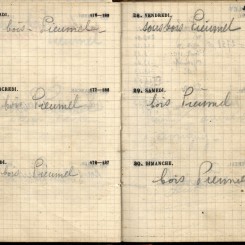 DI.
176-189
bois Pieumel
CREDI.
177-188
bois Pieumel
DI.
178-187
bois Pieumel
28. VENDREDI.
sous bois Pieumel
29. SAMEDI.
bois Pieumel
30. DIMANCHE.
bois Pieumel